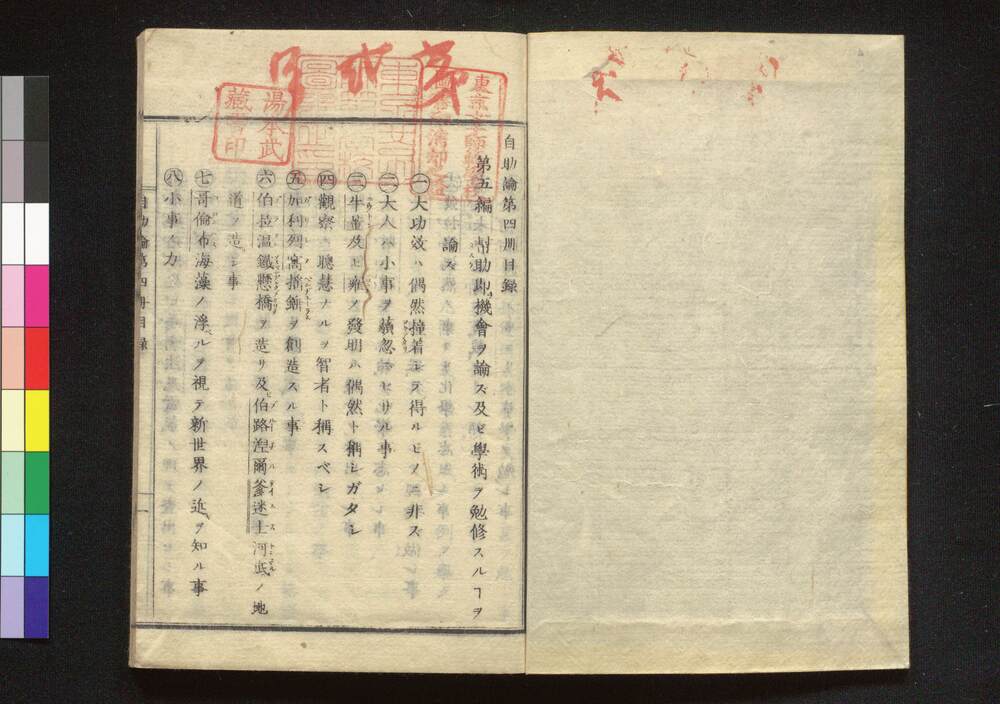 自助論第四冊目録
第五編 幇助卽機會ヲ論ス及ビ學術ヲ勉修スルヿヲ
論ス
㊀大功效ハ偶然撞着シテ得ルモノニ非ス
㊁大人ハ小事ヲ藐忽ニセザル事
㊂牛董及ヒ雍ノ發明ハ偶然ト稱シガタシ
㊃觀察ニ聰慧ナルヲ智者ト稱スベシ
㊄加利列窩搖錘ヲ創造スル事
㊅伯拉温鐵懸橋ヲ造リ及伯路湼爾釜迷士河底ノ地
道ヲ造シ事
㊆哥倫布海藻ノ浮ベルヲ視テ新世界ノ近ヲ知ル事
㊇小事ノ力
自助論第四冊目録
一
湯本武
藏書印